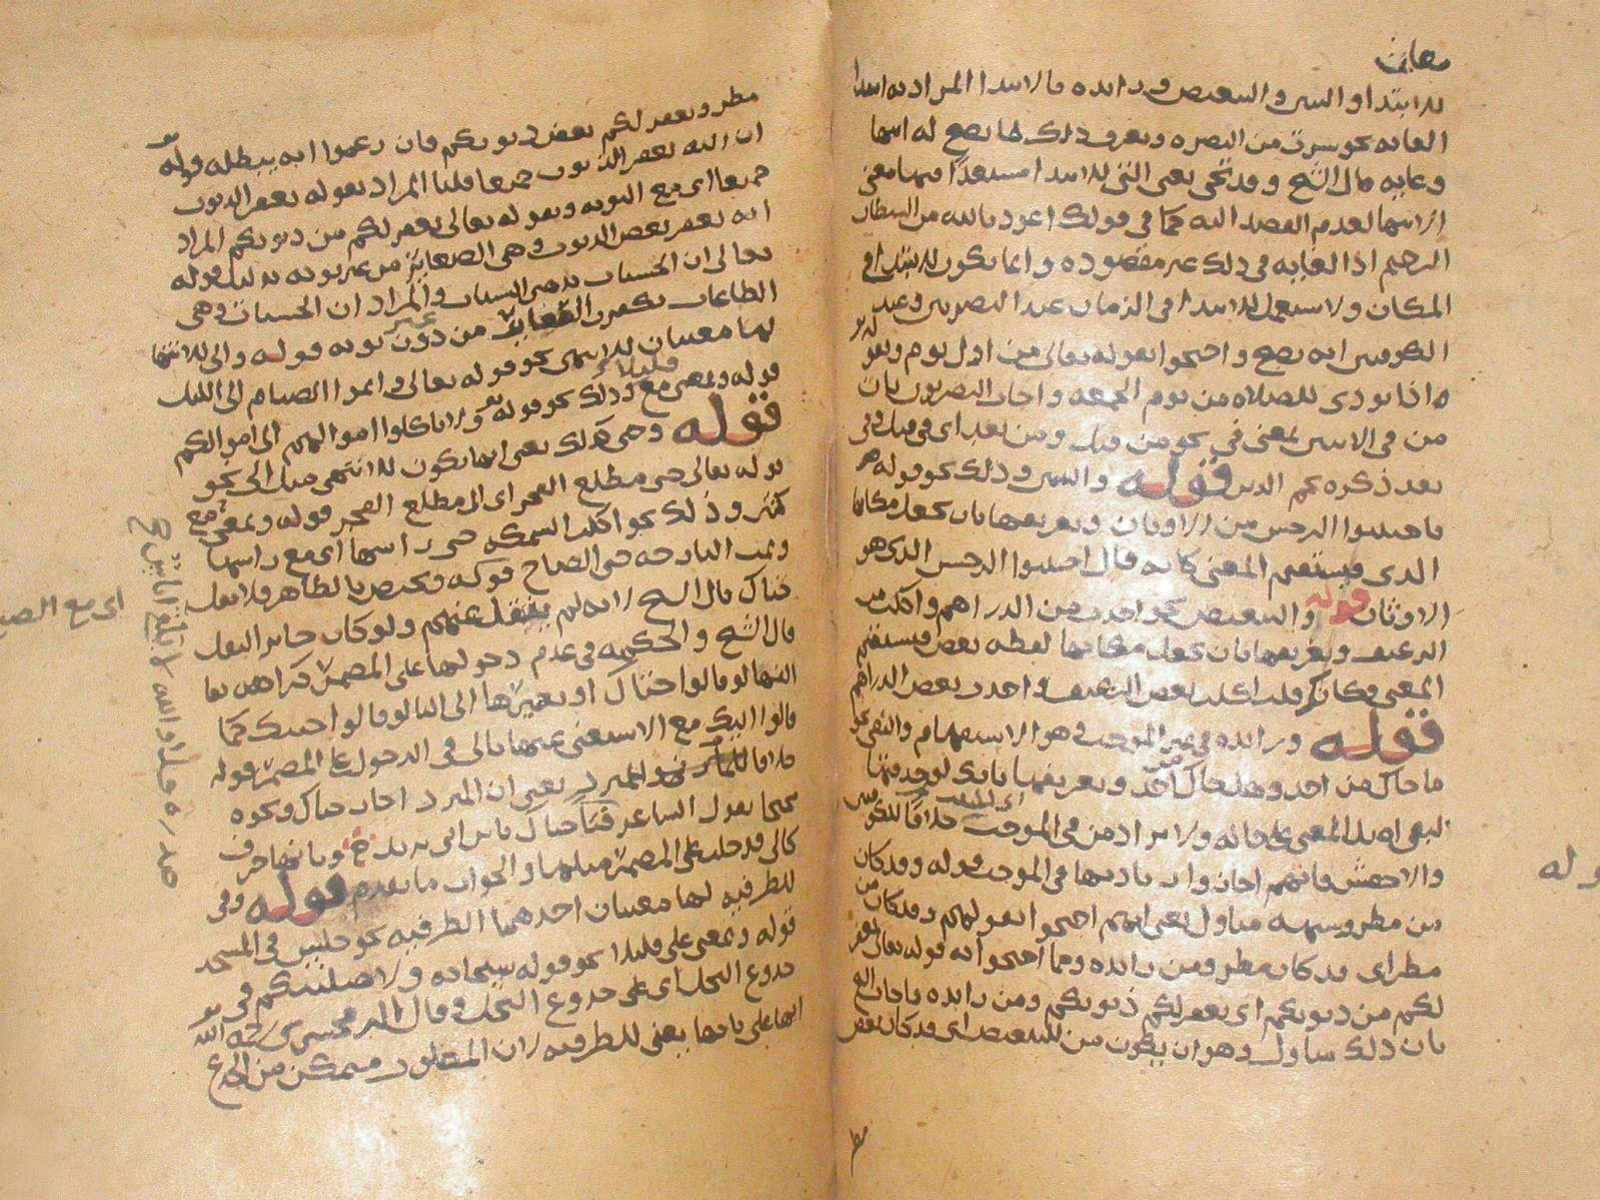 معان
للابتداء والتبيين والتبعيض وزائده فالابتدا المراد به ابتدا
الغايه نحو سرت من البصره ويعرف ذلك بما يصح له انتها
وغايه قال الشيخ وقد تجي يعني التي للابتدا مستعدا فيها معنى
الانتها لعدم القصد اليه كما في قولك اعوذ بالله من الشيطان
الرجيم اذ الغايه في ذلك غير مقصوده وانما يكون للابتدا في
المكان ولا تستعمل للابتدا في الزمان عند البصريين وعند
الكوفيين انه يصح واحتجوا بقوله تعالى من اول يوم وبقو
له اذا نودي للصلاه من يوم الجمعه واجاب البصريون بان
من في الاثنين بمعنى في نحو من قبل ومن بعد اي في قبل وفي
بعد ذكره نجم الدين قوله والتبيين وذلك نحو قوله
فاجتنبوا الرجس من الاوثان وتعريفها بان تجعل مكانها
الذي فيستقيم المعنى كانه قال اجتنبوا الرجس الذي هو
الاوثان قوله والتبعيض نحو اخذت من الدراهم واكلت من
الرغيف وتعريفها بان تجعل مكانها لفظه بعض فيستقيم
المعنى فكانك قلت اكلت بعض الرغيف واخذت بعض الدراهم
قوله وزائده في غير الموجب هو الاستفهام والنفي نحو
ما جاك من احد وهل جاك من احد وتعريفها بانك لو حذفتها
لبقي اصل المعنى على حاله ولا تزاد من في الموجب خلافا للكوفيين
والاخفش فانهم اجازوا زيادتها في الموجب قوله وقد كان
من مطر وشبهه متاول يعني انهم احتجوا بقولهم وقد كان من
مطر اي قد كان مطر ومن زائده ومما احتجوا به قوله تعالى يغفر
لكم من ذنوبكم اي يغفر لكم ذنوبكم ومن زائده فاجاب الشيخ
بان ذلك متاول وهو ان يكون من للتبعيض اي قد كان بعض
مطر
قوله
مطر ويغفر لكم بعض ذنوبكم فان زعموا انه يبطله قوله
ان الله يغفر الذنوب جميعا قلنا المراد بقوله يغفر الذنوب
جميعا اي مع التوبه وبقوله تعالى يغفر لكم من ذنوبكم المراد
انه يغفر بعض الذنوب وهي الصغائر من غير توبه بدليل قوله
تعالى ان الحسنات يذهبن السيئات والمراد ان الحسنات وهي
الطاعات تكفر الصغائر من دون توبه قوله والى للانتها
لها معنيان للانتهى نحو قوله تعالى واتموا الصيام الى الليل
قوله وبمعنى مع قليلا وذلك نحو قوله تع ولا تاكلوا اموالهم الى اموالكم
قوله وحتى كذلك يعني انها تكون للانتهى مثل الى نحو
قوله تعالى حتى مطلع الفجر اي الى مطلع الفجر قوله وبمعنى مع
كثيرا وذلك نحو اكلت السمكه حتى راسها اي مع راسها
ونمت البارحه حتى الصباح قوله ويختص بالظاهر فلا يقال
حتاك قال الشيخ لانه لم ينقل عنهم ولو كان جايز النقل
قال الشيخ والحكمه في عدم دخولها على المضمر كراهه بقا
الفها لو قالوا حتاك او تغييرها الى اليا لو قالوا حتيك كما
قالوا اليك مع الاستغنى عنها بالى في الدخول على المضمر قوله
خلافا للمبرد يعني ان المبرد اجاز حتاك ونحوه
محتجا بقول الشاعر فتى حتاك يابن ابي يزيد وبانها حرف
كالى فدخلت على المضمر مثلها والجواب ما تقدم قوله وفي
للظرفيه لها معنيان احدهما الظرفيه نحو جلس في المسجد
قوله وبمعنى على قليلا نحو قوله سبحانه ولاصلبنكم في
جذوع النخل اي على جذوع النخل وقال الزمخشري رحمه الله
انها على بابها يعني للظرفيه لان المصلوب متمكن من الجذع
اي مع الصباح